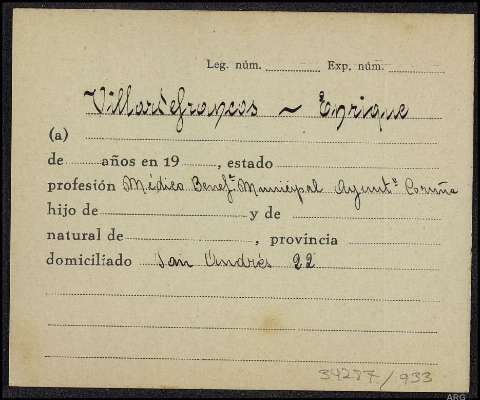 Leg. núm. Exp. núm.
Villardefrancos ~ Enrique
(a)
de años en 19 , estado
profesión Médico Benefª Municipal Ayuntº Coruña
hijo de y de
natural de , provincia
domiciliado San Andrés 22
34277/933
ARG